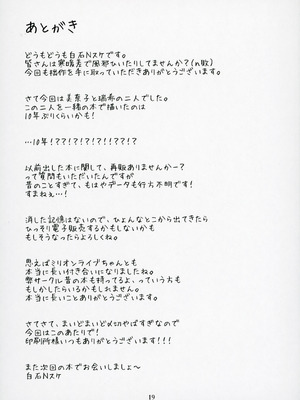 あとがき
どうもどうも白石Nスケです。
皆さんは寒暖差で風邪ひいたりしてませんか？(n敗)
今回も拙作を手に取っていただきありがとうございます。
さて今回は美奈子と瑞希の二人でした。
この二人を一緒の本で描いたのは
10年ぶりくらいかも！
…10年！？？！？！？！？？！？
以前出した本に関して、再販ありませんかー？
って質問もいただいたんですが
昔のことすぎて、もはやデータも行方不明です！
すまねぇ…！
消した記憶はないので、ひょんなとこから出てきたら
ひっそり電子販売するかもしないかも
もしそうなったらよろしくね。
思えばミリオンライブちゃんとも
本当に長い付き合いになりましたね。
弊サークル昔の本も持ってるよ、っていう方も
もしかしたらいるかもしれません。
本当に長いことありがとうございます。
さてさて、まいどまいど〆切やばすぎなので
今回はこのあたりで！
印刷所様いつもありがとうございます！
また次回の本でお会いしましょ〜
白石Nスケ
19